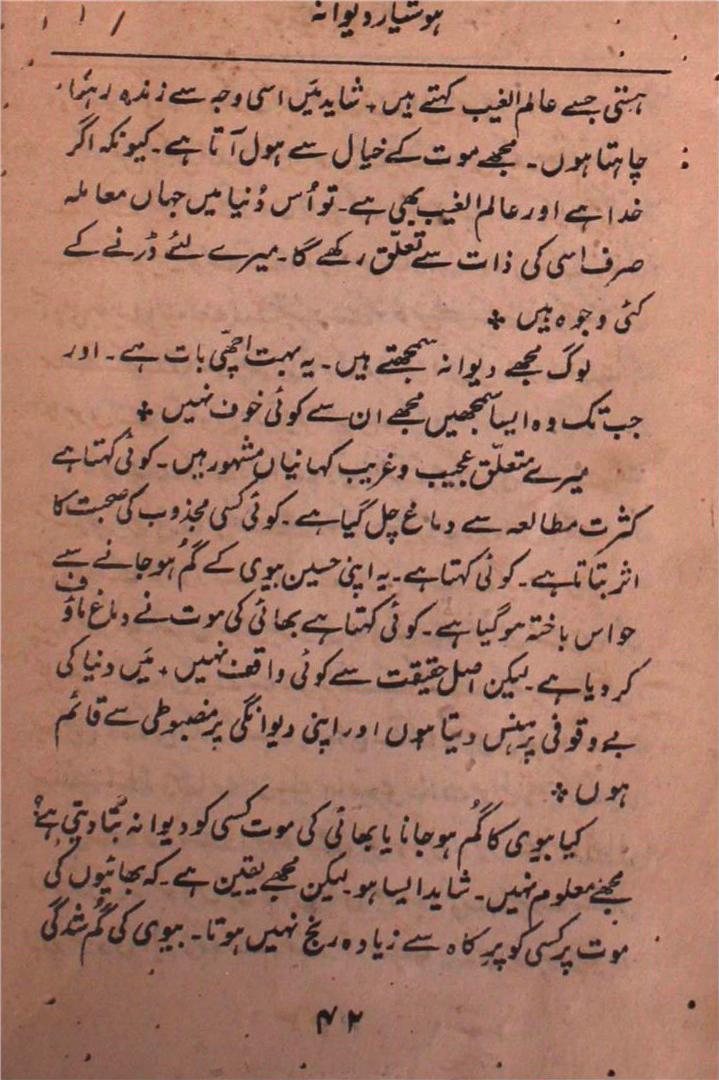 ہوشیار دیوانہ
ہستی جسے عالم الغیب کہتے ہیں ٭ شاید مَیں اسی وجہ سے زندہ رہنا
چاہتا ہوں۔ مجھے موت کے خیال سے ہول آتا ہے۔ کیونکہ اگر
خدا ہے اور عالم الغیب بھی ہے۔ تو اُس دُنیا میں جہاں معاملہ
صرف اسی کی ذات سے تعلّق رکھے گا۔ میرے لئے ڈرنے کے
کئی وجوہ ہیں ٭
لوگ مجھے دیوانہ سمجھتے ہیں۔ یہ بہت اچھّی بات ہے۔ اور
جب تک وہ ایسا سمجھیں مجھے ان سے کوئی خوف نہیں ٭
میرے متعلّق عجیب و غریب کہانیاں مشہور ہیں۔ کوئی کہتا ہے
کثرت مطالعہ سے دماغ چل گیا ہے۔ کوئی کسی مجذوب کی صحبت کا
اثر بتاتا ہے۔ کوئی کہتا ہے۔ یہ اپنی حسین بیوی کے گُم ہو جانے سے
حواس باختہ ہو گیا ہے۔ کوئی کہتا ہے بھائی کی موت نے دماغ ماؤف
کر دیا ہے۔ لیکن اصل حقیقت سے کوئی واقف نہیں ٭ مَیں دنیا کی
بے وقوفی پر ہنس دیتا ہوں اور اپنی دیوانگی پر مضبوطی سے قائم
ہوں ٭
کیا بیوی کا گُم ہو جانا یا بھائی کی موت کسی کو دیوانہ بنا دیتی ہے؟
مجھے معلوم نہیں۔ شاید ایسا ہو۔ لیکن مجھے یقین ہے۔ کہ بھائیوں کی
موت پر کسی کو پرِ کاہ سے زیادہ رنج نہیں ہوتا۔ بیوی کی گُم شدگی
۴۲